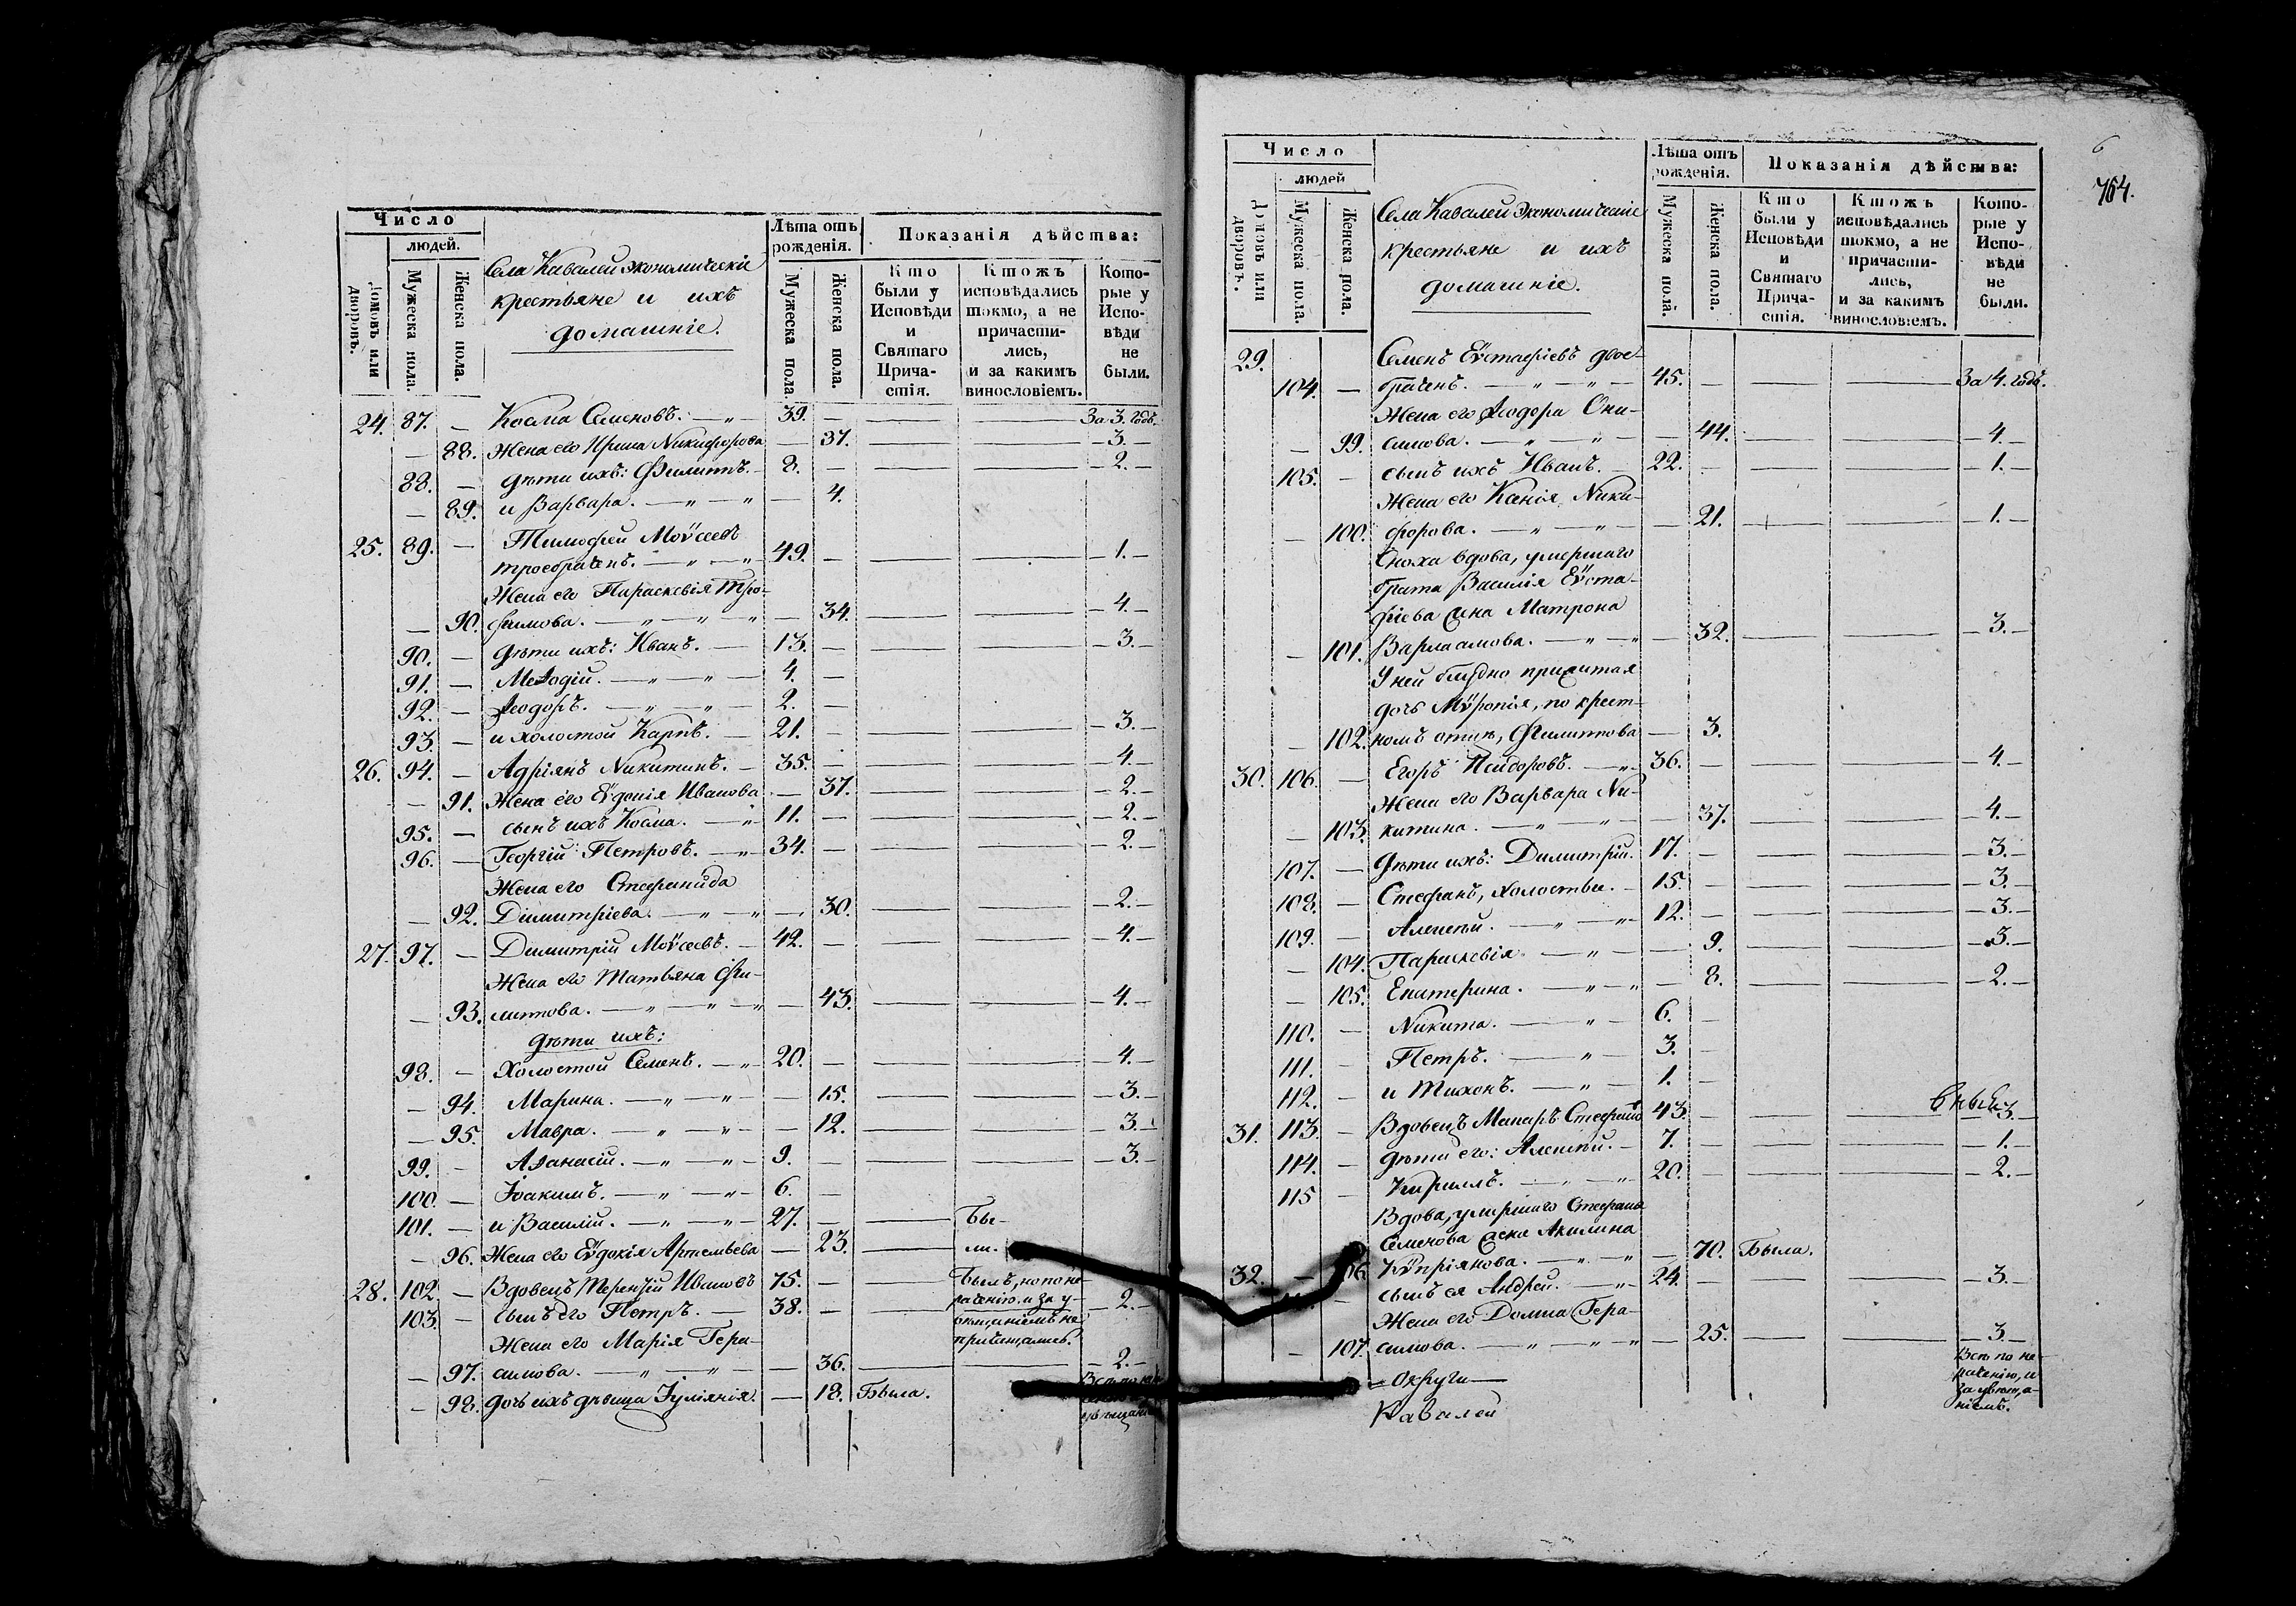 Число
людей.
Домовъ или дворовъ.
Мужеска пола.
Женска пола.
Села Кавалей экономическіе
крестьяне и ихъ
домашніе.
Лѣта отъ рожденія.
Мужеска пола.
Женска пола.
Показанія дѣйства:
Кто были у Исповѣди и Святаго Прича-стія.
Ктожъ исповѣдались токмо, а не причасти-лись, и за какимъ винословіемъ.
Кото-рые у Испо-вѣди не были.
24. 87. — Косма Семеновъ. — „ 39. — За 3. годъ.
— 88. Жена его Ирина Никифорова — 37. — 3. —
88. — Дѣти ихъ: Филиппъ. — 8. — — 2. —
— 89. и Варвара. — „ — „ — 4.
25. 89. — Тимофей Моѵсеевъ
троебраченъ. — „ — „ 49. — — 1. —
Жена его Параскевія Тро-
— 90. фимова. — „ — „ — 34. — 4. —
90. — Дѣти ихъ: Иванъ. — 13. — — 3. —
91. — Меѳодій. — „ — „ — 4. —
92. — Ѳеодоръ. — „ — „ — 2. —
93. — и холостой Карпъ. — 21. — — 3. —
26. 94. — Адріянъ Никитинъ. — 35. — — 4. —
— 91. Жена его Еѵдокія Иванова — 37. — 2. —
95. — сынъ ихъ Косма. — „ 11. — — 2. —
96. — Георгій Петровъ. — „ 34. — — 2. —
Жена его Стефанида
— 92. Димитріева. — „ — „ — 30. — 2. —
27. 97. — Димитрій Моѵсеевъ. — 42. — — 4. —
Жена его Татьяна Фи-
— 93. липпова. — „ — „ — „ — 43. — 4. —
Дѣти ихъ:
98. — Холостой Семенъ. — „ 20. — — 4. —
— 94. Марина. — „ — „ — 15. — 3. —
— 95. Мавра. — „ — „ — 12. — 3. —
99. — Аѳанасій. — „ — „ — 9. — — 3. —
100. — Іоакимъ. — „ — „ 6. —
101. — и Василій. — „ — „ 27. — Бы-
— 96. Жена его Еѵдокія Артемьева — 23. — ли.
28. 102. — Вдовецъ Терентій Ивановъ 75. — Былъ, но по не-
103. — сынъ его Петръ. — 38. — раченію и за у- — 2. —
Жена его Марія Гера- причащались.
— 97. симова. — „ — „ — 36. — 2. —
— 98. дочь ихъ дѣвица Іуліянія. — 18. Была.
6
764.
Число
людей
Домовъ или дворовъ.
Мужеска пола.
Женска пола.
Села Кавалей экономическіе
крестьяне и ихъ
домашніе.
Лѣта отъ рожденія.
Мужеска пола.
Женска пола.
Показанія дѣйства:
Кто были у Исповѣди и Святаго Прича-стія.
Ктожъ исповѣдались токмо, а не причасти-лись, и за какимъ винословіемъ.
Кото-рые у Испо-вѣди не были.
29. Семенъ Еѵстафіевъ двое-
104. — браченъ. — „ — „ — 45. — За 4. годъ.
Жена его Ѳеодора Они-
— 99. симова. — „ — „ — 44. — 4. —
105. — сынъ ихъ Иванъ. — 22. — — 1. —
Жена его Ксенія Ники-
— 100. форова. — „ — „ — 21. — 1. —
Сноха вдова, умершаго
брата Василія Еѵста-
фіева жена Матрона
— 101. Варлаамова. — „ — „ — 32. — 3. —
У ней блудно прижитая
дочь Мѵропія, по крест-
— 102. номъ отцѣ, Филиппова — 3.
30. 106. — Егоръ Исидоровъ. — „ 36. — — 4. —
Жена его Варвара Ни-
— 103. китина. — „ — „ — 37. — 4. —
107. — Дѣти ихъ: Димитрій. 17. — — 3. —
108. — Стефанъ, холостые. — 15. — — 3. —
109. — Алексѣй. — „ — „ 12. — — 3. —
— 104. Параскевія — „ — 9. — 3. —
— 105. Екатерина. — „ — „ — 8. — 2. —
110. — Никита. — „ — 6. —
111. — Петръ. — „ — 3. —
112. — и Тихонъ. — „ — 1. —
31. 113. — Вдовецъ Макаръ Стефановъ 43. — — 3. —
114. — дѣти его: Алексѣй. — 7. — — 1. —
115 — Кириллъ. — „ — „ 20. — — 2. —
Вдова, умершаго Стефана
Семенова жена Акилина
32. — Кѵпріянова. — „ — „ — 70. Была.
сынъ ея Андрей. — „ 24. — — 3. —
Жена его Домна Гера-
— 107. симова. — „ — „ — „ — 25. — 3. —
Всѣ по не-
раченію, и
— Округи —
Кавалей